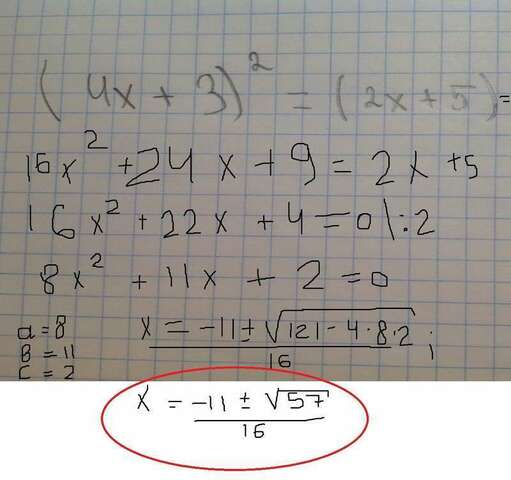 (4x + 3)² = (2x + 5), =
16x² + 24x + 9 = 2x + 5
16x² + 22x + 4 = 0 \:2
8x² + 11x + 2 = 0
a = 8
B = 11
c = 2
x = -11 ± √121 - 4·8·2 / 16 ;
x = -11 ± √57 / 16